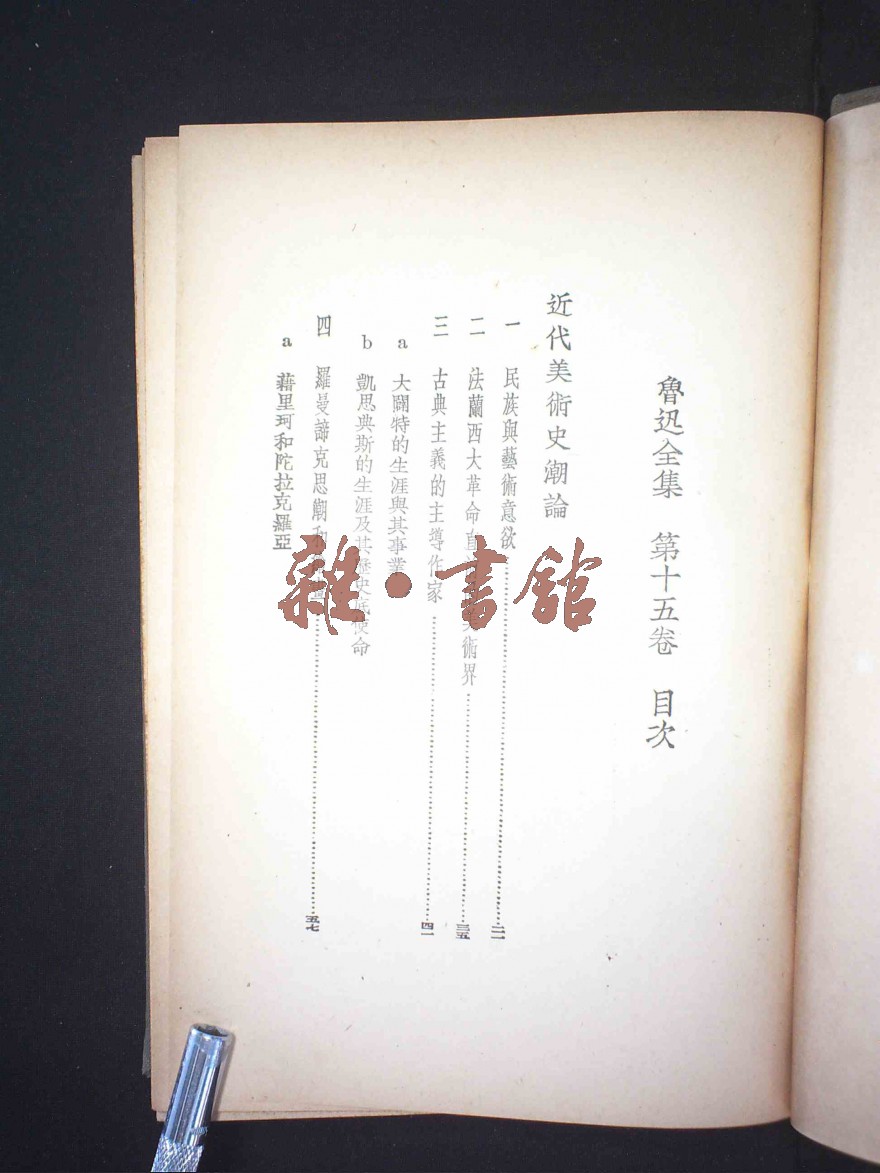 魯迅全集 第十五卷 目次
近代美術史潮論
一 民族與藝術意欲……二一
二 法蘭西大革命直 美術界……三五
三 古典主義的主導作家……四一
a 大闢特的生涯與其事業
b 凱思典斯的生涯及其歷史底使命
四 羅曼諦克思潮和……五七
a 藉里珂和陀拉克羅亞
雜·書館